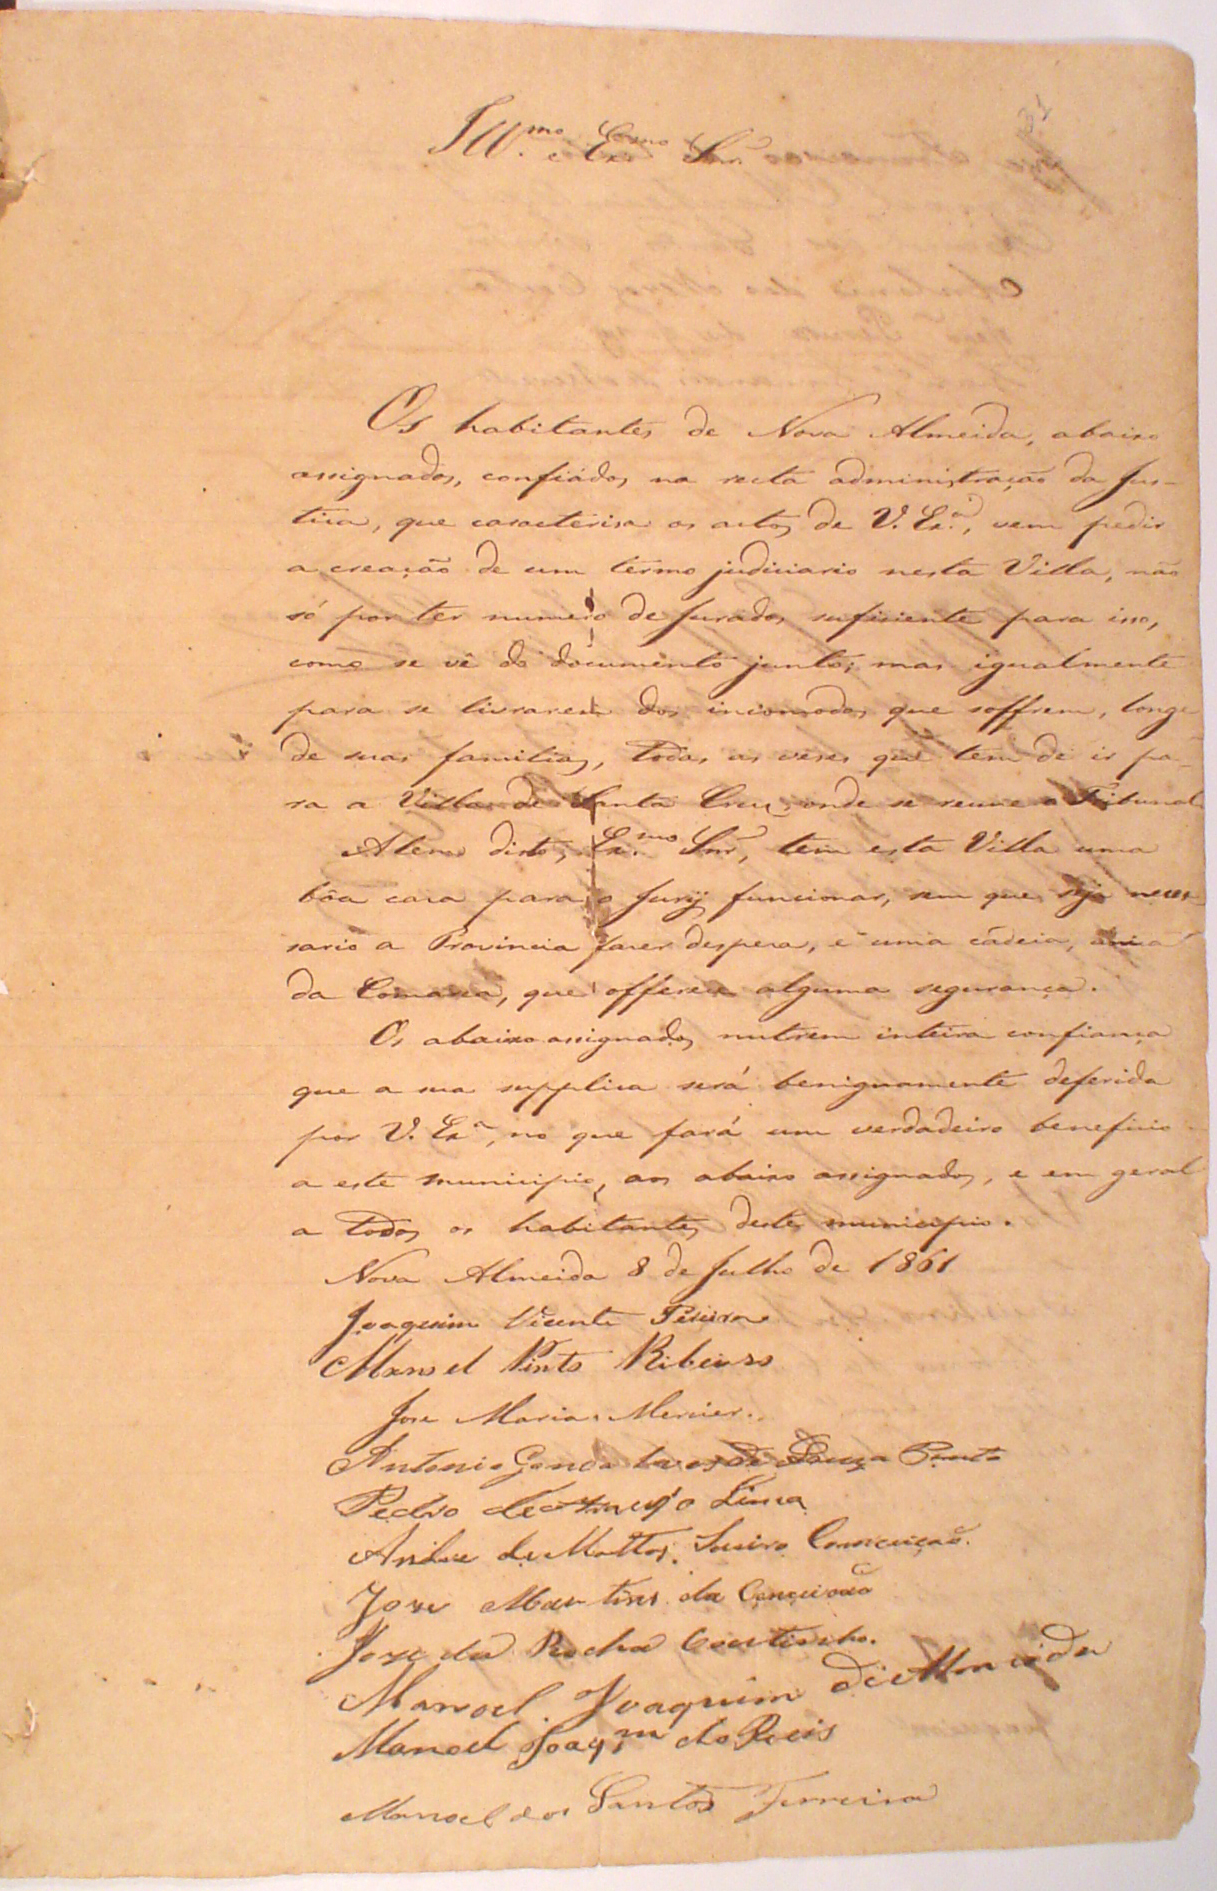 Ill.mo e Ex.mo Snr.
Os habitantes de Nova Almeida, abaixo
assignados, confiádos na recta administração da Jus-
tiça, que caracterisa os actos de V. Ex.a, vem pedir
a creação de um têrmo judiciario nesta Villa, não
só por ter numero de Jurados suficiente para isso,
como se vê do documento junto; mas igualmente
para se livrarem dos incomodos que soffrem, longe
de suas familias, todas as veses que têm de ir pa-
ra a Villa de Santa Cruz, onde se reune o Tribunal
Alem disto, Ex.mo Snr, tem esta Villa uma
bôa casa para o Jury funcionar, sem que seja neces
sario a Provincia fazer despesa, e uma cadeia, unica
da Comarca, que offerece alguma segurança.
Os abaixo assignados nutrem inteira confiança
que a sua supplica será benignamente deferida
por V. Ex.a, no que fará um verdadeiro beneficio
a este municipio, aos abaixo assignados, e em geral
a todos os habitantes deste municipio.
Nova Almeida 8 de Julho de 1861
Joaquim Vicente Pereira
Manoel Pinto Ribeiro
Jose Maria Mercier.
Antonio Gonçalves de Souza Pinto
Pedro de Araujo Lima
Andre de Mattos Conceição.
Jose Martins da Conceição
Jose da Rocha Coutinho.
Manoel Joaquim de Almeida
Manoel Joaq.m do Reis
Manoel dos Santos Ferreira